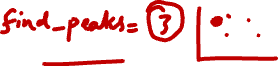 find_peaks= 3